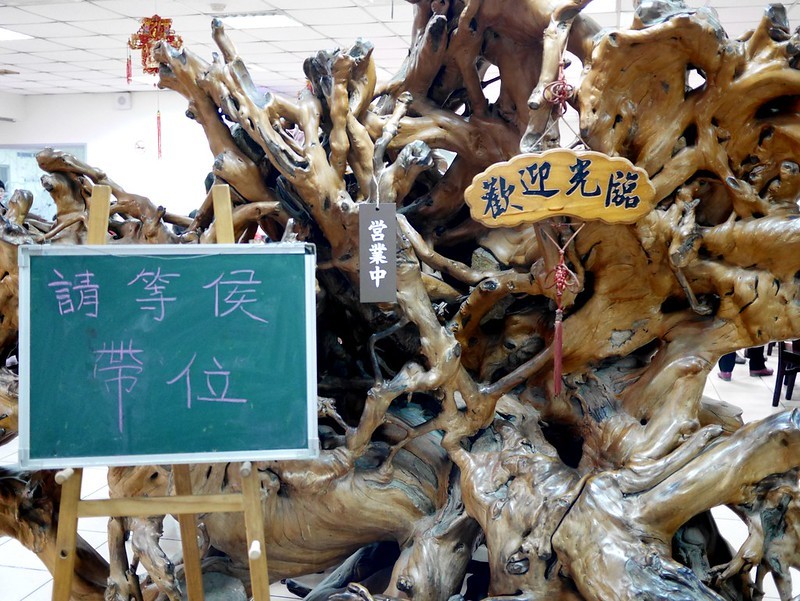 請等侯
帶位
営業中
歡迎光臨